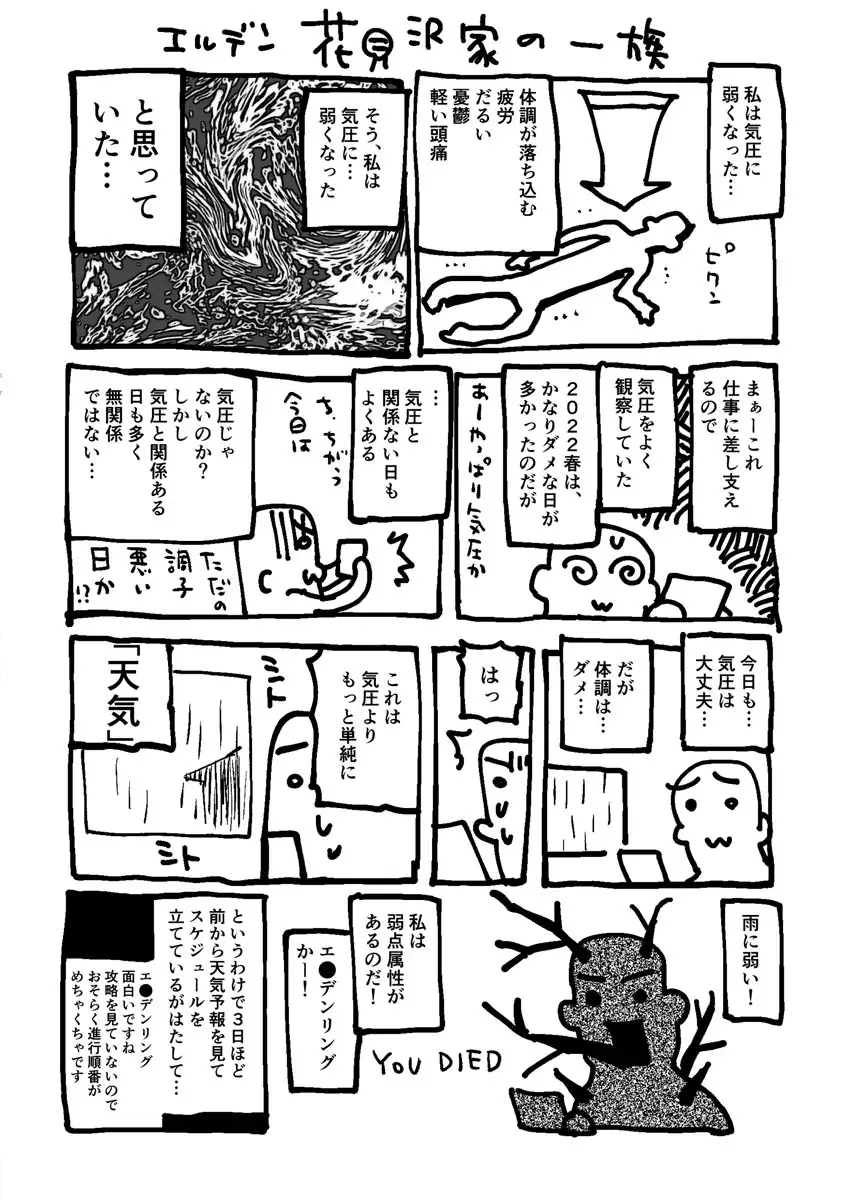 エルデン 花見沢家の一族
私は気圧に
弱くなった…
ピクン
体調が落ち込む
疲労
だるい
憂鬱
軽い頭痛
そう、私は
気圧に…
弱くなった
と思って
いた…
まぁーこれ
仕事に差し支え
るので
気圧をよく
観察していた
2022春は、
かなりダメな日が
多かったのだが
あーやっぱり気圧か
…
気圧と
関係ない日も
よくある
ち、ちがう
今日は
気圧じゃ
ないのか?
しかし
気圧と関係ある
日も多く
無関係
ではない…
ただの
調子
悪い
日か
!?
今日も…
気圧は
大丈夫…
だが
体調は…
ダメ…
はっ
これは
気圧より
もっと単純に
シト
シト
「天気」
雨に弱い!
私は
弱点属性が
あるのだ!
エ●デンリング
かー!
YOU DIED
というわけで3日ほど
前から天気予報を見て
スケジュールを
立てているがはたして…
エ●デンリング
面白いですね
攻略を見ていないので
おそらく進行順番が
めちゃくちゃです